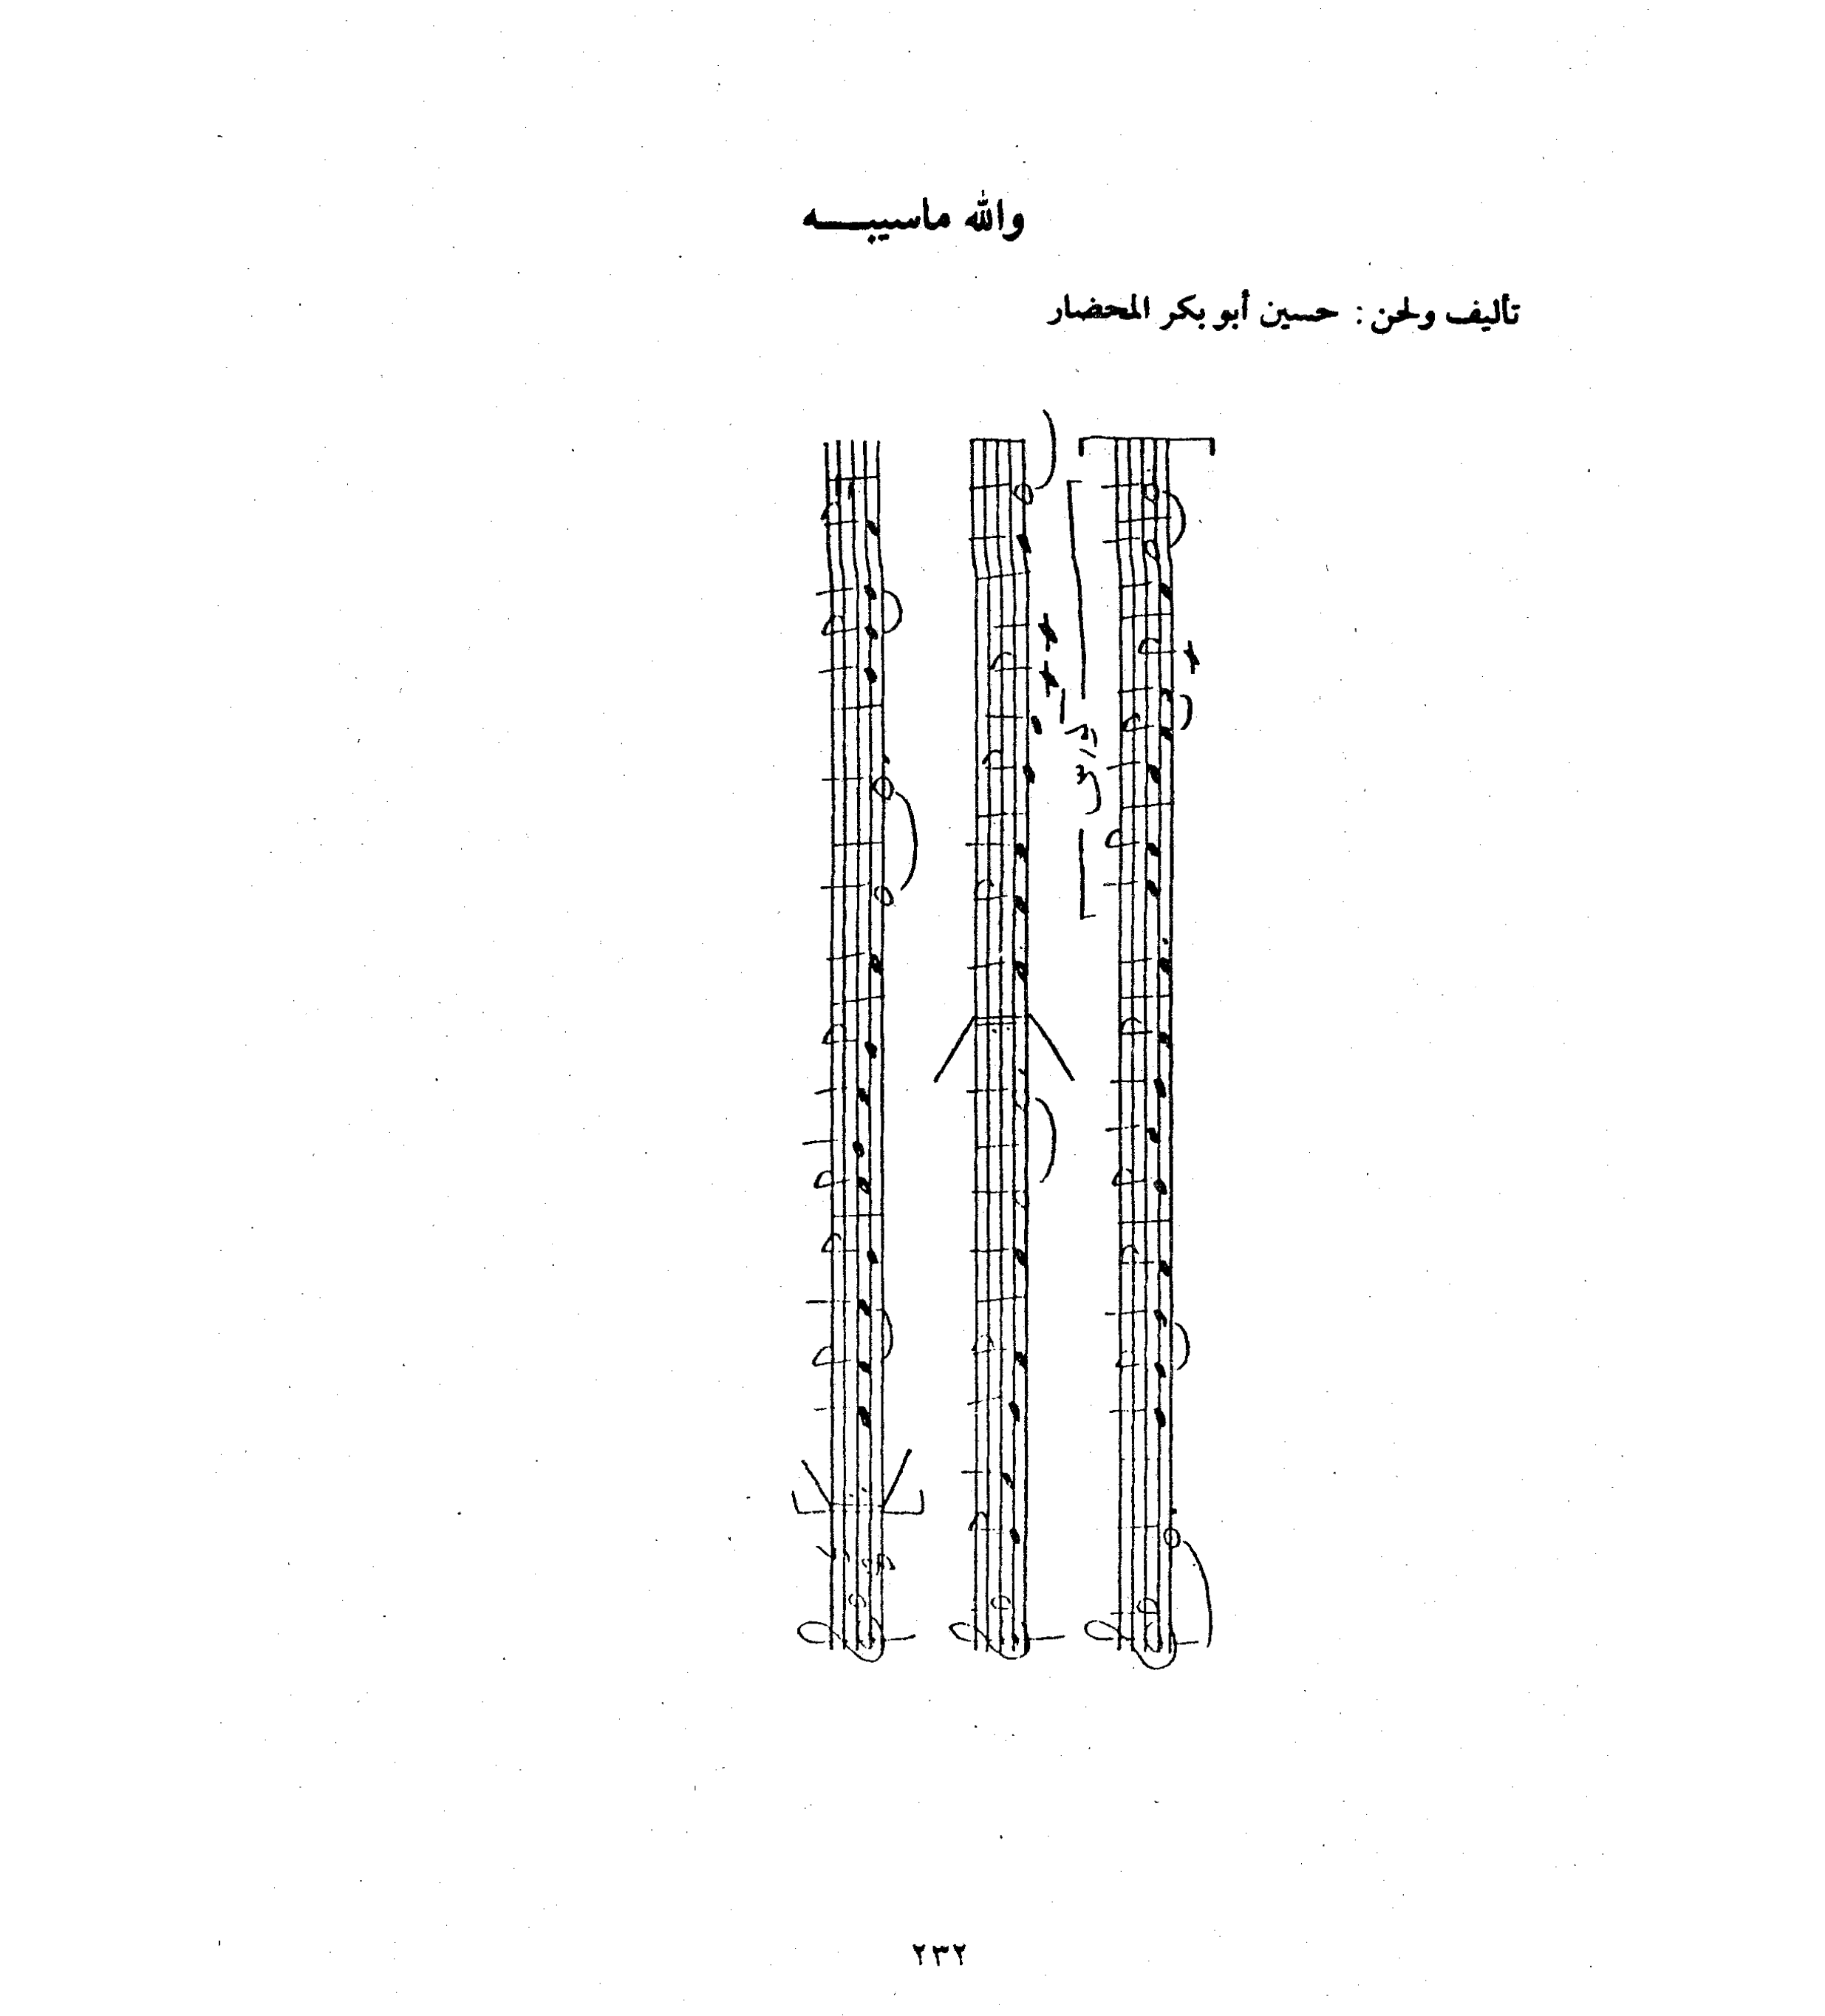 والله ماسيبـــــه
تأليف ولحن : حسين أبو بكر المحضار
٢٣٢